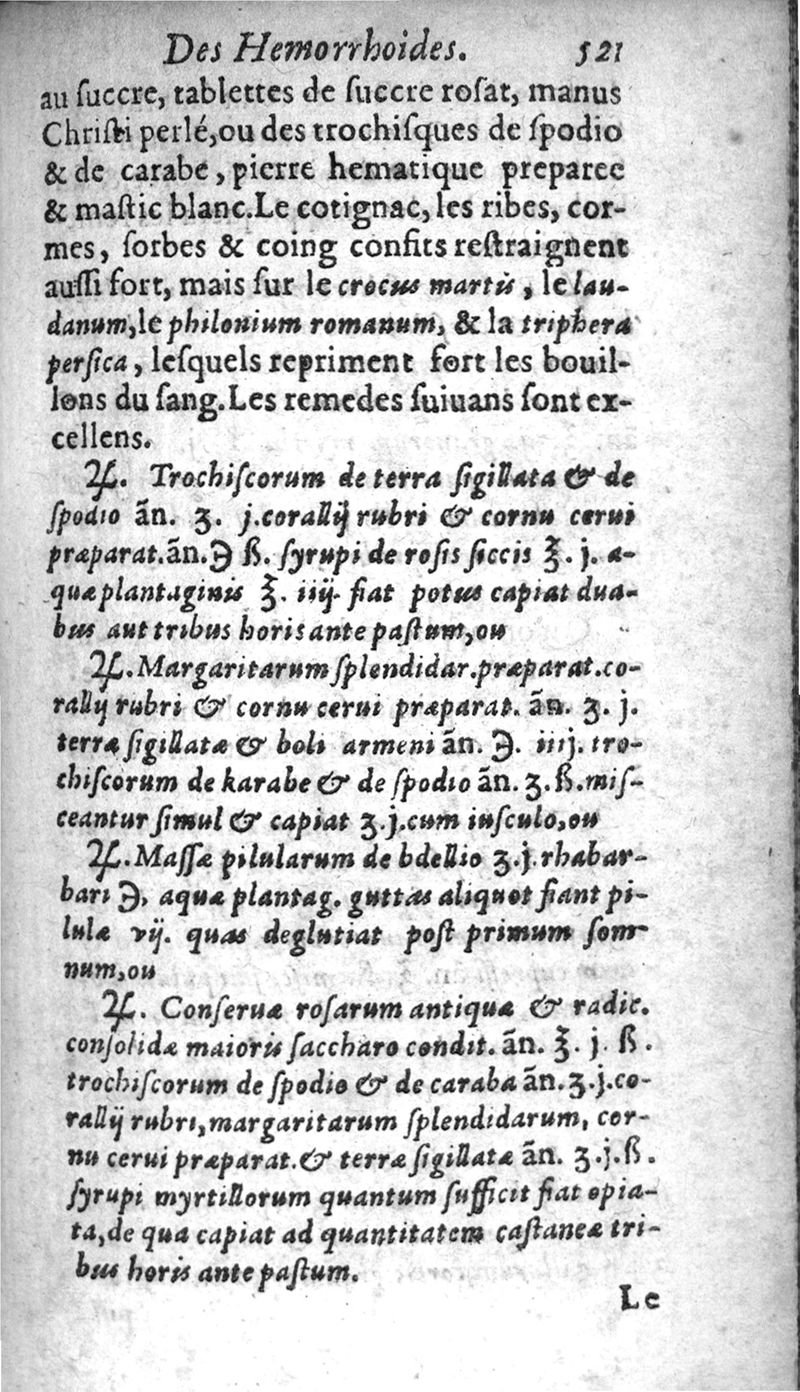 Des Hemorrhoides. 521
au ſuccre, tablettes de ſuccre roſat, manus
Chriſti perlé, ou des trochiſques de ſpodio
& de carabe, pierre hematique preparee
& maſtic blanc. Le cotignac, les ribes, cor-
mes, ſorbes & coing confits reſtraignent
auſſi fort, mais ſur le crocus martis, le lau-
danum, le philonium romanum, & la triphera
perſica, leſquels repriment fort les bouil-
lons du ſang. Les remedes ſuiuans ſont ex-
cellens.
♃. Trochiſcorum de terra ſigillata & de
ſpodio ãn. ʒ. j. corallij rubri & cornu cerui
præparat. ãn. ℈ ß. ſyrupi de roſis ſiccis ℥. j. a-
quæ plantaginis ℥. iiij. fiat potus capiat dua-
bus aut tribus horis ante paſtum, ou
♃. Margaritarum ſplendidar. præparat. co-
rallij rubri & cornu cerui præparat. ãn. ʒ. j.
terræ ſigillatæ & boli armeni ãn. ℈. iiij. tro-
chiſcorum de karabe & de ſpodio ãn. ʒ. ß. miſ-
ceantur ſimul & capiat ʒ. j. cum iuſculo, ou
♃. Maſſæ pilularum de bdellio ʒ. j. rhabar-
bari ℈, aquæ plantag. guttas aliquot fiant pi-
lulæ vij. quas deglutiat poſt primum ſom-
num, ou
♃. Conſeruæ roſarum antiquæ & radic.
conſolidæ maioris ſaccharo condit. ãn. ℥. j. ß.
trochiſcorum de ſpodio & de caraba ãn. ʒ. j. co-
rallij rubri, margaritarum ſplendidarum, cor-
nu cerui præparat. & terræ ſigillatæ ãn. ʒ. j. ß.
ſyrupi myrtillorum quantum ſufficit fiat opia-
ta, de qua capiat ad quantitatem caſtaneæ tri-
bus horis ante paſtum.
Le